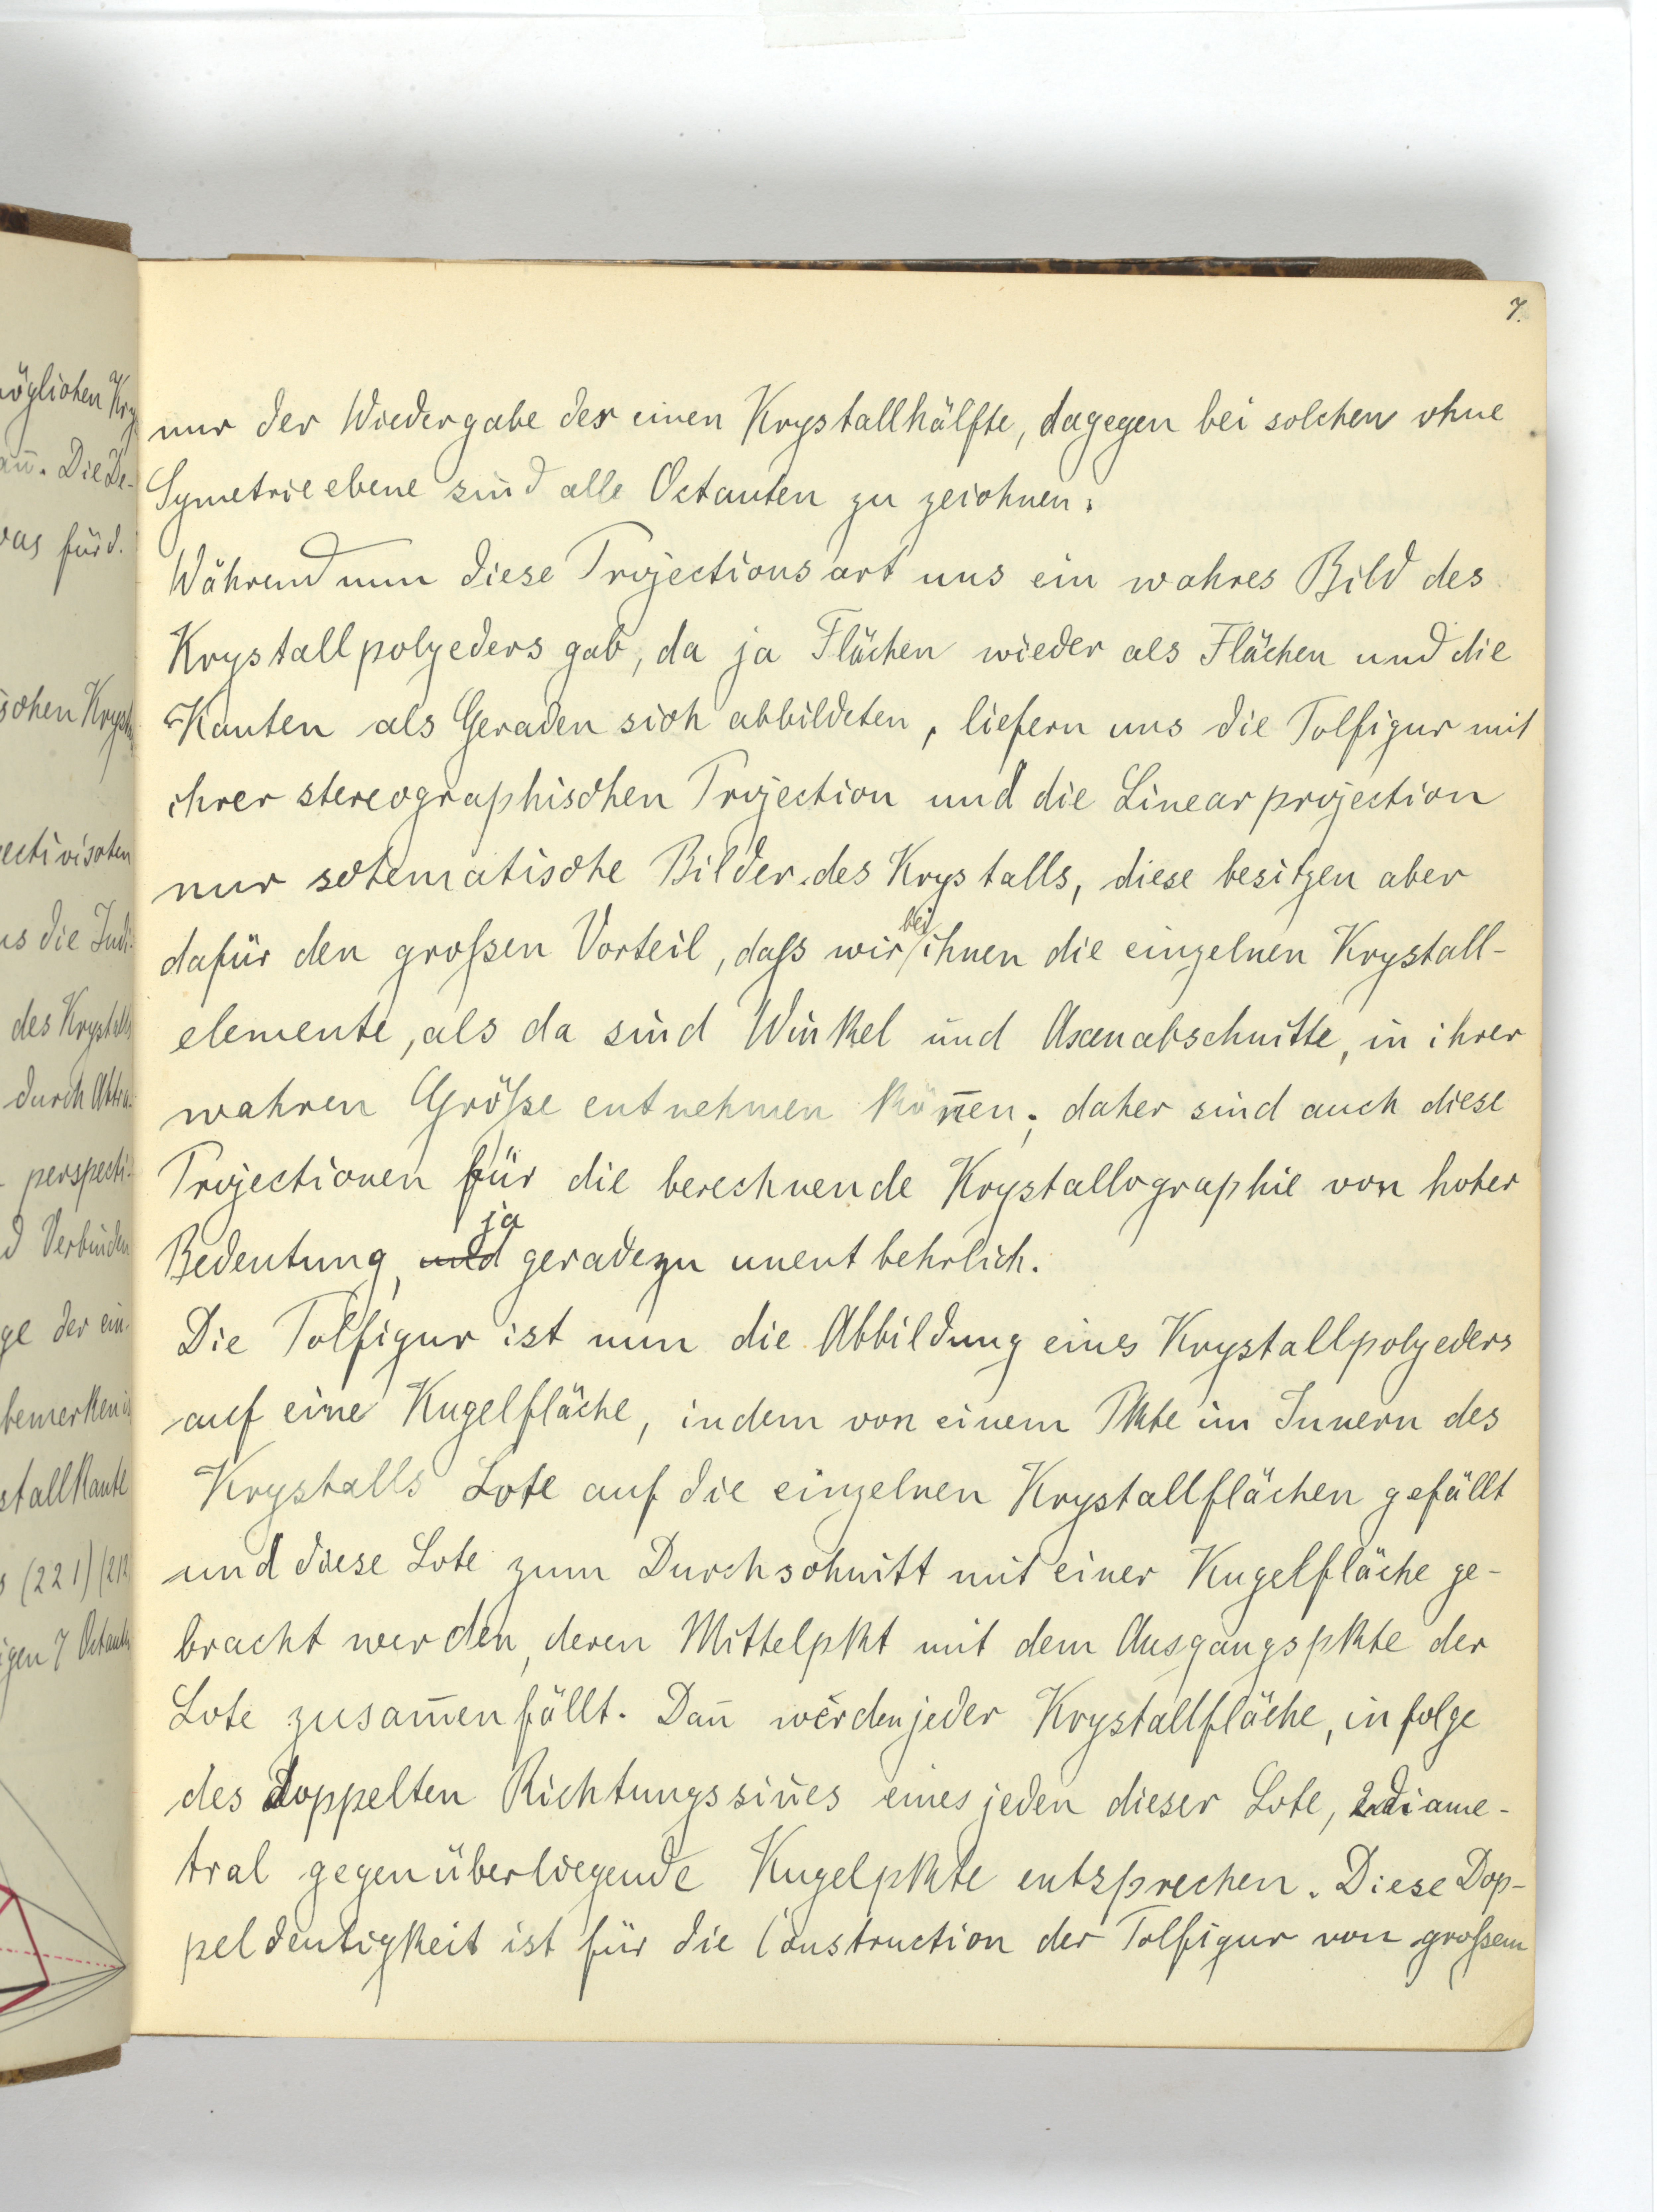 7.
nur der Wiedergabe der einen Krystallhälfte, dagegen bei solchen ohne
Symetrieebene sind alle Octanten zu zeichnen.
Während nun diese Projectionsart uns ein wahres Bild des
Krystallpolyeders gab, da ja Flächen wieder als Flächen und die
Kanten als Geraden sich abbildeten, liefern uns die Polfigur mit
ihrer stereographischen Projection und die Linearprojection
nur schematische Bilder des Krystalls, diese besitzen aber
dafür den großen Vorteil, daß wir bei ihnen die einzelnen Krystall-
elemente, als da sind Winkel und Axenabschnitte, in ihrer
wahren Größe entnehmen kön̅en; daher sind auch diese
Projectionen für die berechnende Krystallographie von hoher
Bedeutung, und ja geradezu unentbehrlich.
Die Polfigur ist nun die Abbildung eines Krystallpolyeders
auf eine Kugelfläche, indem von einem Pkte im Innern des
Krystalls Lote auf die einzelnen Krystallflächen gefällt
und diese Lote zum Durchschnitt mit einer Kugelfläche ge-
bracht werden, deren Mittelpkt mit dem Ausgangspkte der
Lote zusam̅enfällt. Dan̅ werden jeder Krystallfläche, infolge
des doppelten Richtungssin̅es eines jeden dieser Lote, 2 diame-
tral gegenüberliegende Kugelpkte entsprechen. Diese Dop-
peldeutigkeit ist für die Construction der Polfigur von großem
öglichen Kry
an̅. Die De-
für d.
schen Kryst
ectivischen
us die Indi-
des Krystalls
durch Abtra-
- perspecti-
d Verbinden
ge der ein-
bemerken
stallkante
(221) (212
igen 7 Octanten